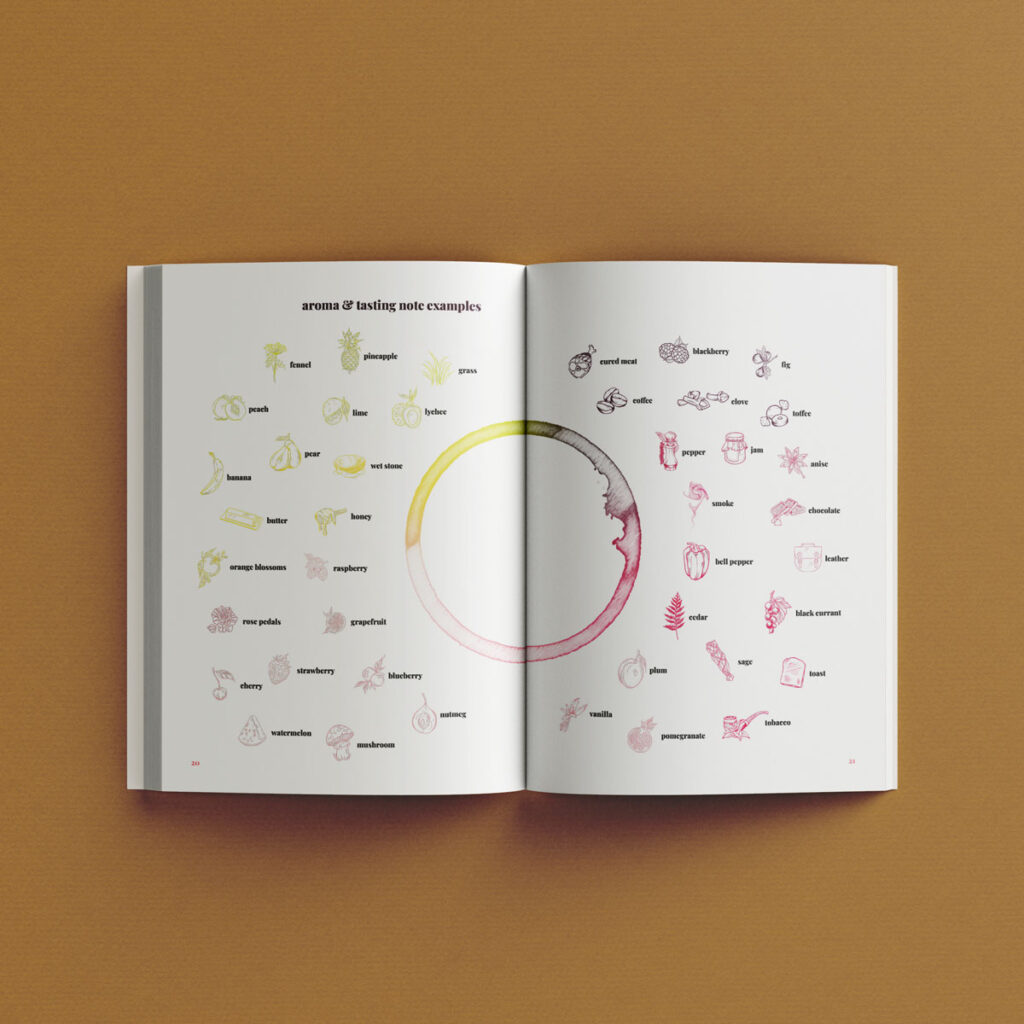 aroma & tasting note examples
fennel
pineapple
grass
peach
lime
lychee
pear
wet stone
banana
butter
honey
orange blossoms
raspberry
rose pedals
grapefruit
strawberry
cherry
blueberry
nutmeg
watermelon
mushroom
20
cured meat
blackberry
fig
coffee
clove
toffee
pepper
jam
anise
smoke
chocolate
bell pepper
leather
cedar
black currant
sage
plum
toast
vanilla
tobacco
pomegranate
21